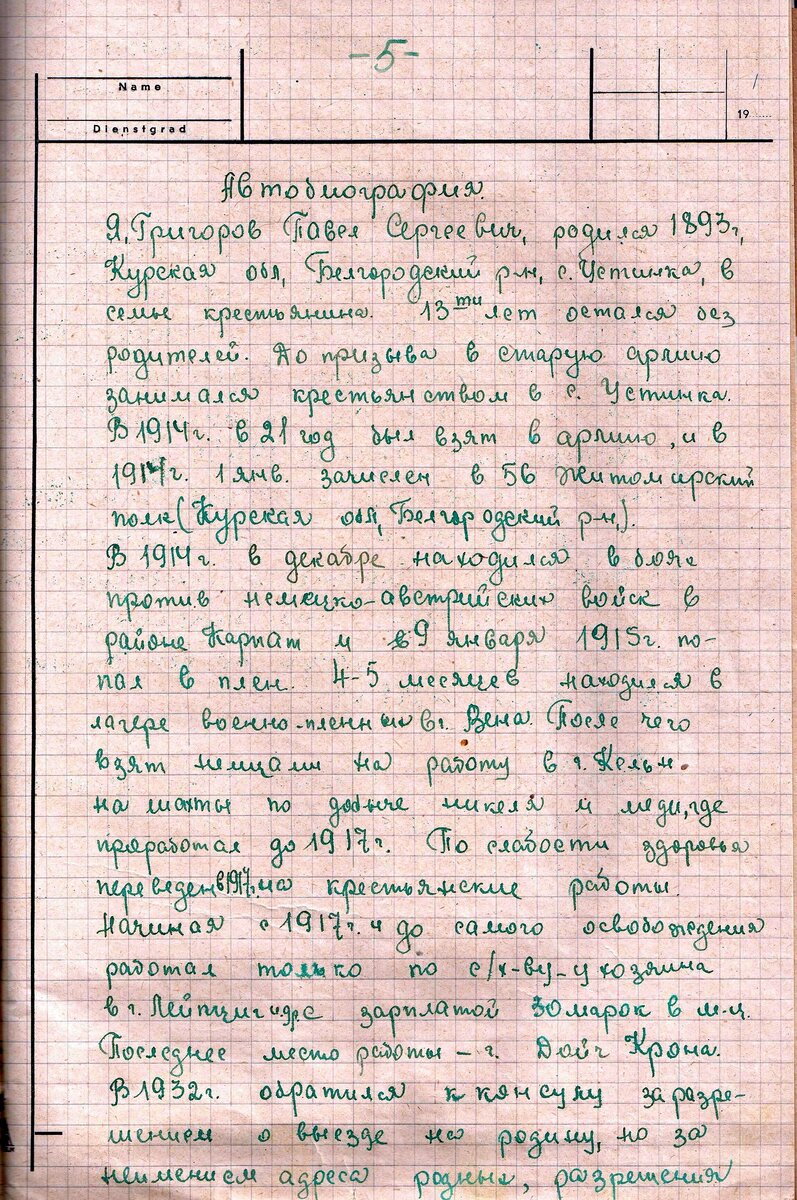 -5-
Name
Dienstgrad
19
Автобиография.
Я, Григоров Павел Сергеевич, родился 1893г,
Курская обл, Белгородский р-н, с. Устинка, в
семье крестьянина. 13ти лет остался без
родителей. До призыва в старую армию
занимался крестьянством в с. Устинка.
В 1914г. в 21 год был взят в армию, и в
1914г. 1 янв. зачислен в 56 Житомирский
полк (Курская обл, Белгородский р-н).
В 1914г. в декабре находился в боях
против немецко-австрийских войск в
районе Карпат и в 9 января 1915г. по-
пал в плен. 4-5 месяцев находился в
лагере военно-пленных в г. Вена. После чего
взят немцами на работу в г. Кельн
на шахты по добыче никеля и меди, где
проработал до 1917г. По слабости здоровья
переведен в 1917г. на крестьянские работы.
Начиная с 1917г. и до самого освобождения
работал только по с/х-ву-у хозяина
в г. Лейпциг и др. с зарплатой 30 марок в м-ц.
Последнее место работы – г. Дойч Крона.
В 1932г. обратился к консулу за разре-
шением о выезде на родину, но за
неимением адреса родных, разрешения